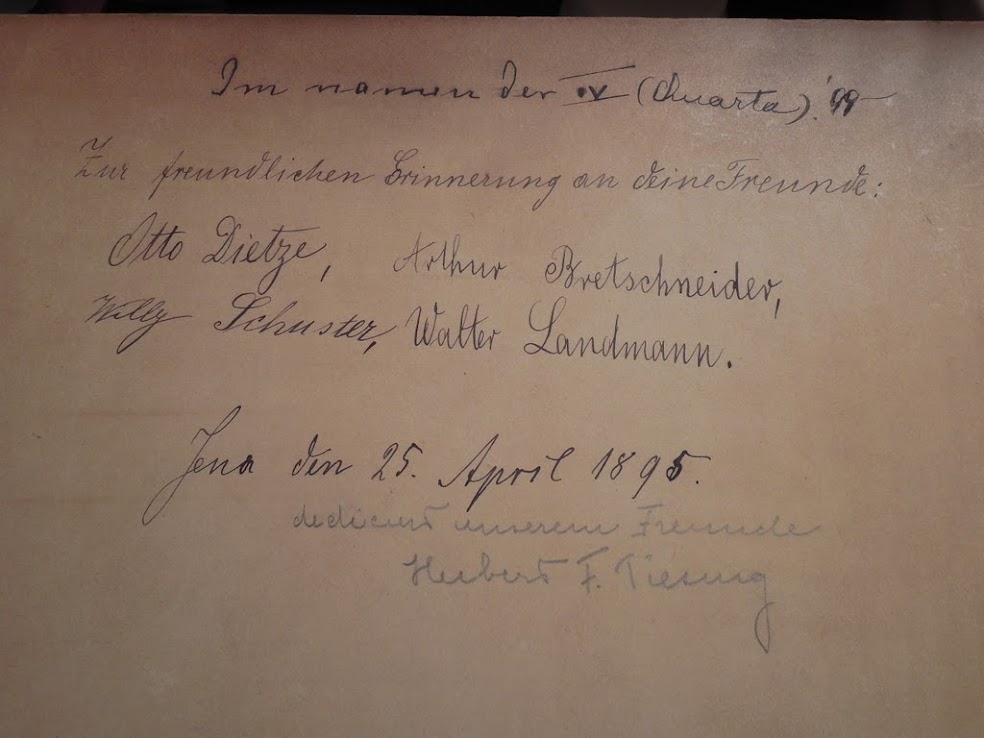 Im namen der IV (Quarta). '99
Zur freundlichen Erinnerung an deine Freunde:
Otto Dietze, Arthur Bretschneider,
Willy Schuster, Walter Landmann.
Jena den 25. April 1895.
dediciert unserem Freunde
Herbert F. Tiesing